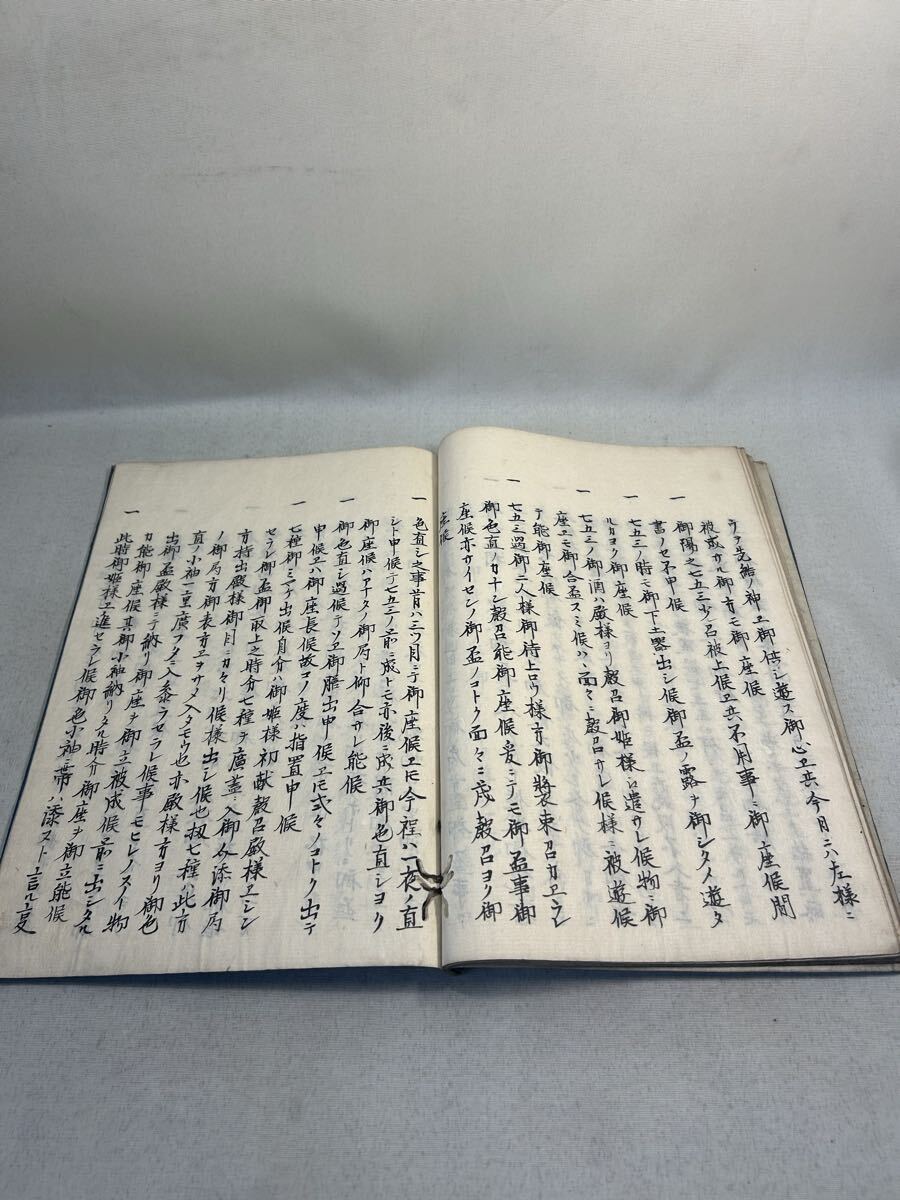 ラテ先結ノ神エ御供シ遊ス御心ヱ共今月ニハ左様ニ
被成カル御方モ御座候
御陽之七五三少召被上候ヱ共不用事ニ御座候間
書ノセ不申候
一 七五三ノ時モ御下土器出シ候御盃ノ露ヲ御シタメ遊タ
ルカヨク御座候
一 七五三ノ御酒ハ殿様ヨリ穀召御姫様ニ遣サレ候物ニ御
座エモ御合盃スミ候ハヽ面々ニ穀召サレ候様ニ被遊候
テ能御座候
一 七五三過御二人様御待上ロウ様方御装束召カヱラレ
御色直ノカナシ穀召能御座候爰ニテモ御盃事御
座候亦カイセンノ御盃ノコトク面々ニ茂穀召ヨリ御
座候
一 色直シ之事昔ハ三ツ月ニテ御座候ヱ𪜈今程ハ一夜ノ直
シト申候テ七五三ノ前ニ成トモ亦後ニ成共御色直シヨク
御座候ハアナタノ御局ト仰合サレ能候
一 御色直シ過候テソヱ御膳出申候ヱ𪜈式々ノコトク出テ
申候ヱハ御座長候故コノ度ハ指置申候
一 七種御ミヤケ出候自分ハ御姫様初献穀召殿様ヱシン
セラレ御盃御取上之時分七種ヲ廣蓋ニ入御分添御局
方持出殿様御目ニカヽリ候様出シ候也扨七種ハ此方
ノ御局方御表方エヲサメ入タモウ也亦殿様方ヨリ御色
直ノ小袖一重廣フタニ入参ラセラレ候事モヒレノスイ物
出御盃殿様ニテ納リ御座ヲ御立被成候前ニ出シタル
カ能御座候其御小袖納リタル時分御座ヲ御立能候
一 此時御姫様ヱ進セラレ候御色小袖ニ帯ハ添スト言ル夏